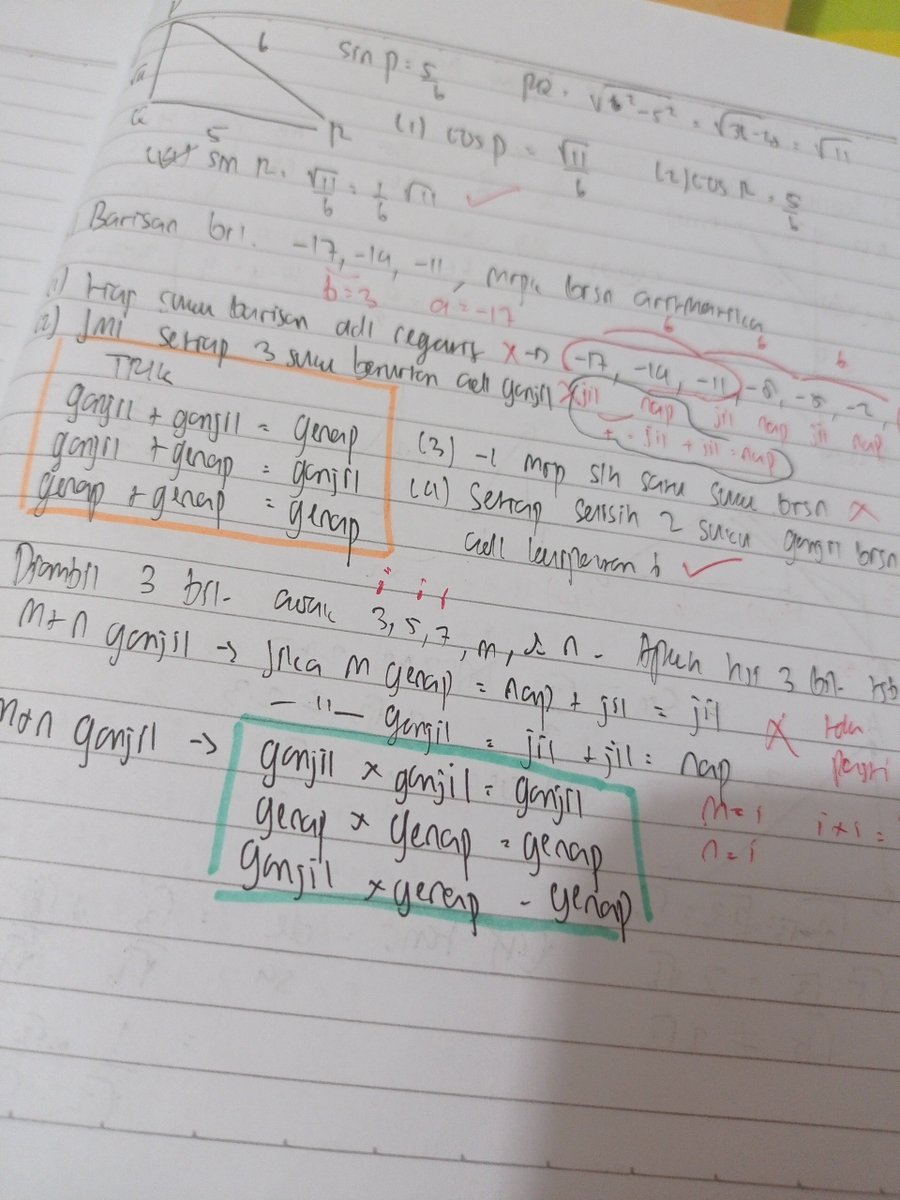 P
6
√11
Q
5
R
sin P = 5/6
PQ = √6²-5² = √36-25 = √11
(1) cos P = √11/6
(2) cos R = 5/6
sin R = √11/6 = 1/6 √11 ✓
Barisan bil. -17, -14, -11, mrpk brsn aritmatika
b = 3 a = -17
1) tiap suku barisan adl negatif x → (-17, -14, -11) -8, -5, -2,
6 6 6
2) Jml setiap 3 suku berurutan adl ganjil x jil nap jil nap jil nap
+ = jil + jil = nap
TRIK
ganjil + ganjil = genap
ganjil + genap = ganjil
genap + genap = genap
(3) -1 mrp slh satu suku brsn x
(4) setiap selisih 2 suku ganjil brsn
adl kelipatan 6 ✓
Diambil 3 bil. 3, 5, 7, m, & n. Apkh 3 bil. tsb
i i i
m+n ganjil → Jika m genap = nap + jil = jil x
- 11 - ganjil = jil + jil = nap
m = i i + i =
n = i
ganjil →
ganjil x ganjil = ganjil
genap x genap = genap
ganjil x genap = genap